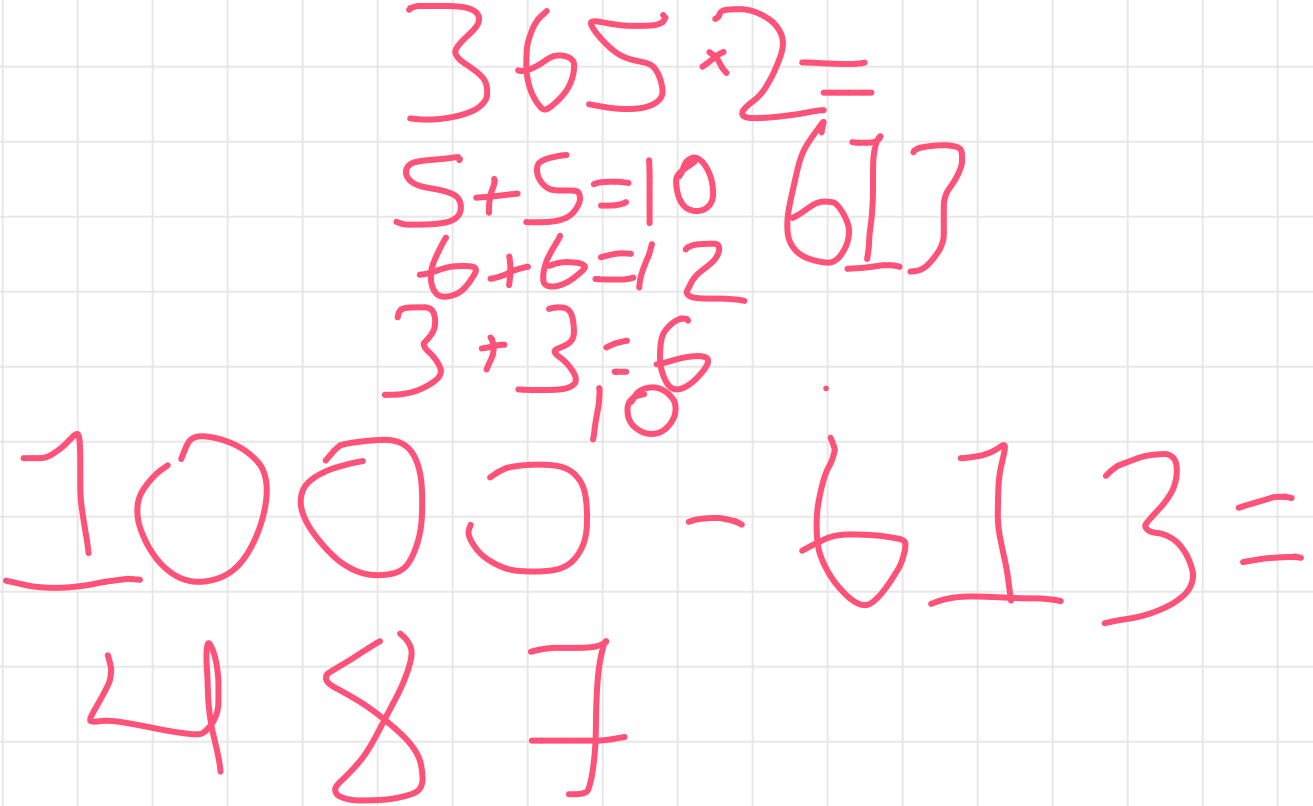 365×2=
613
5+5=10
6+6=12
3+3=6
10
1000-613=
487